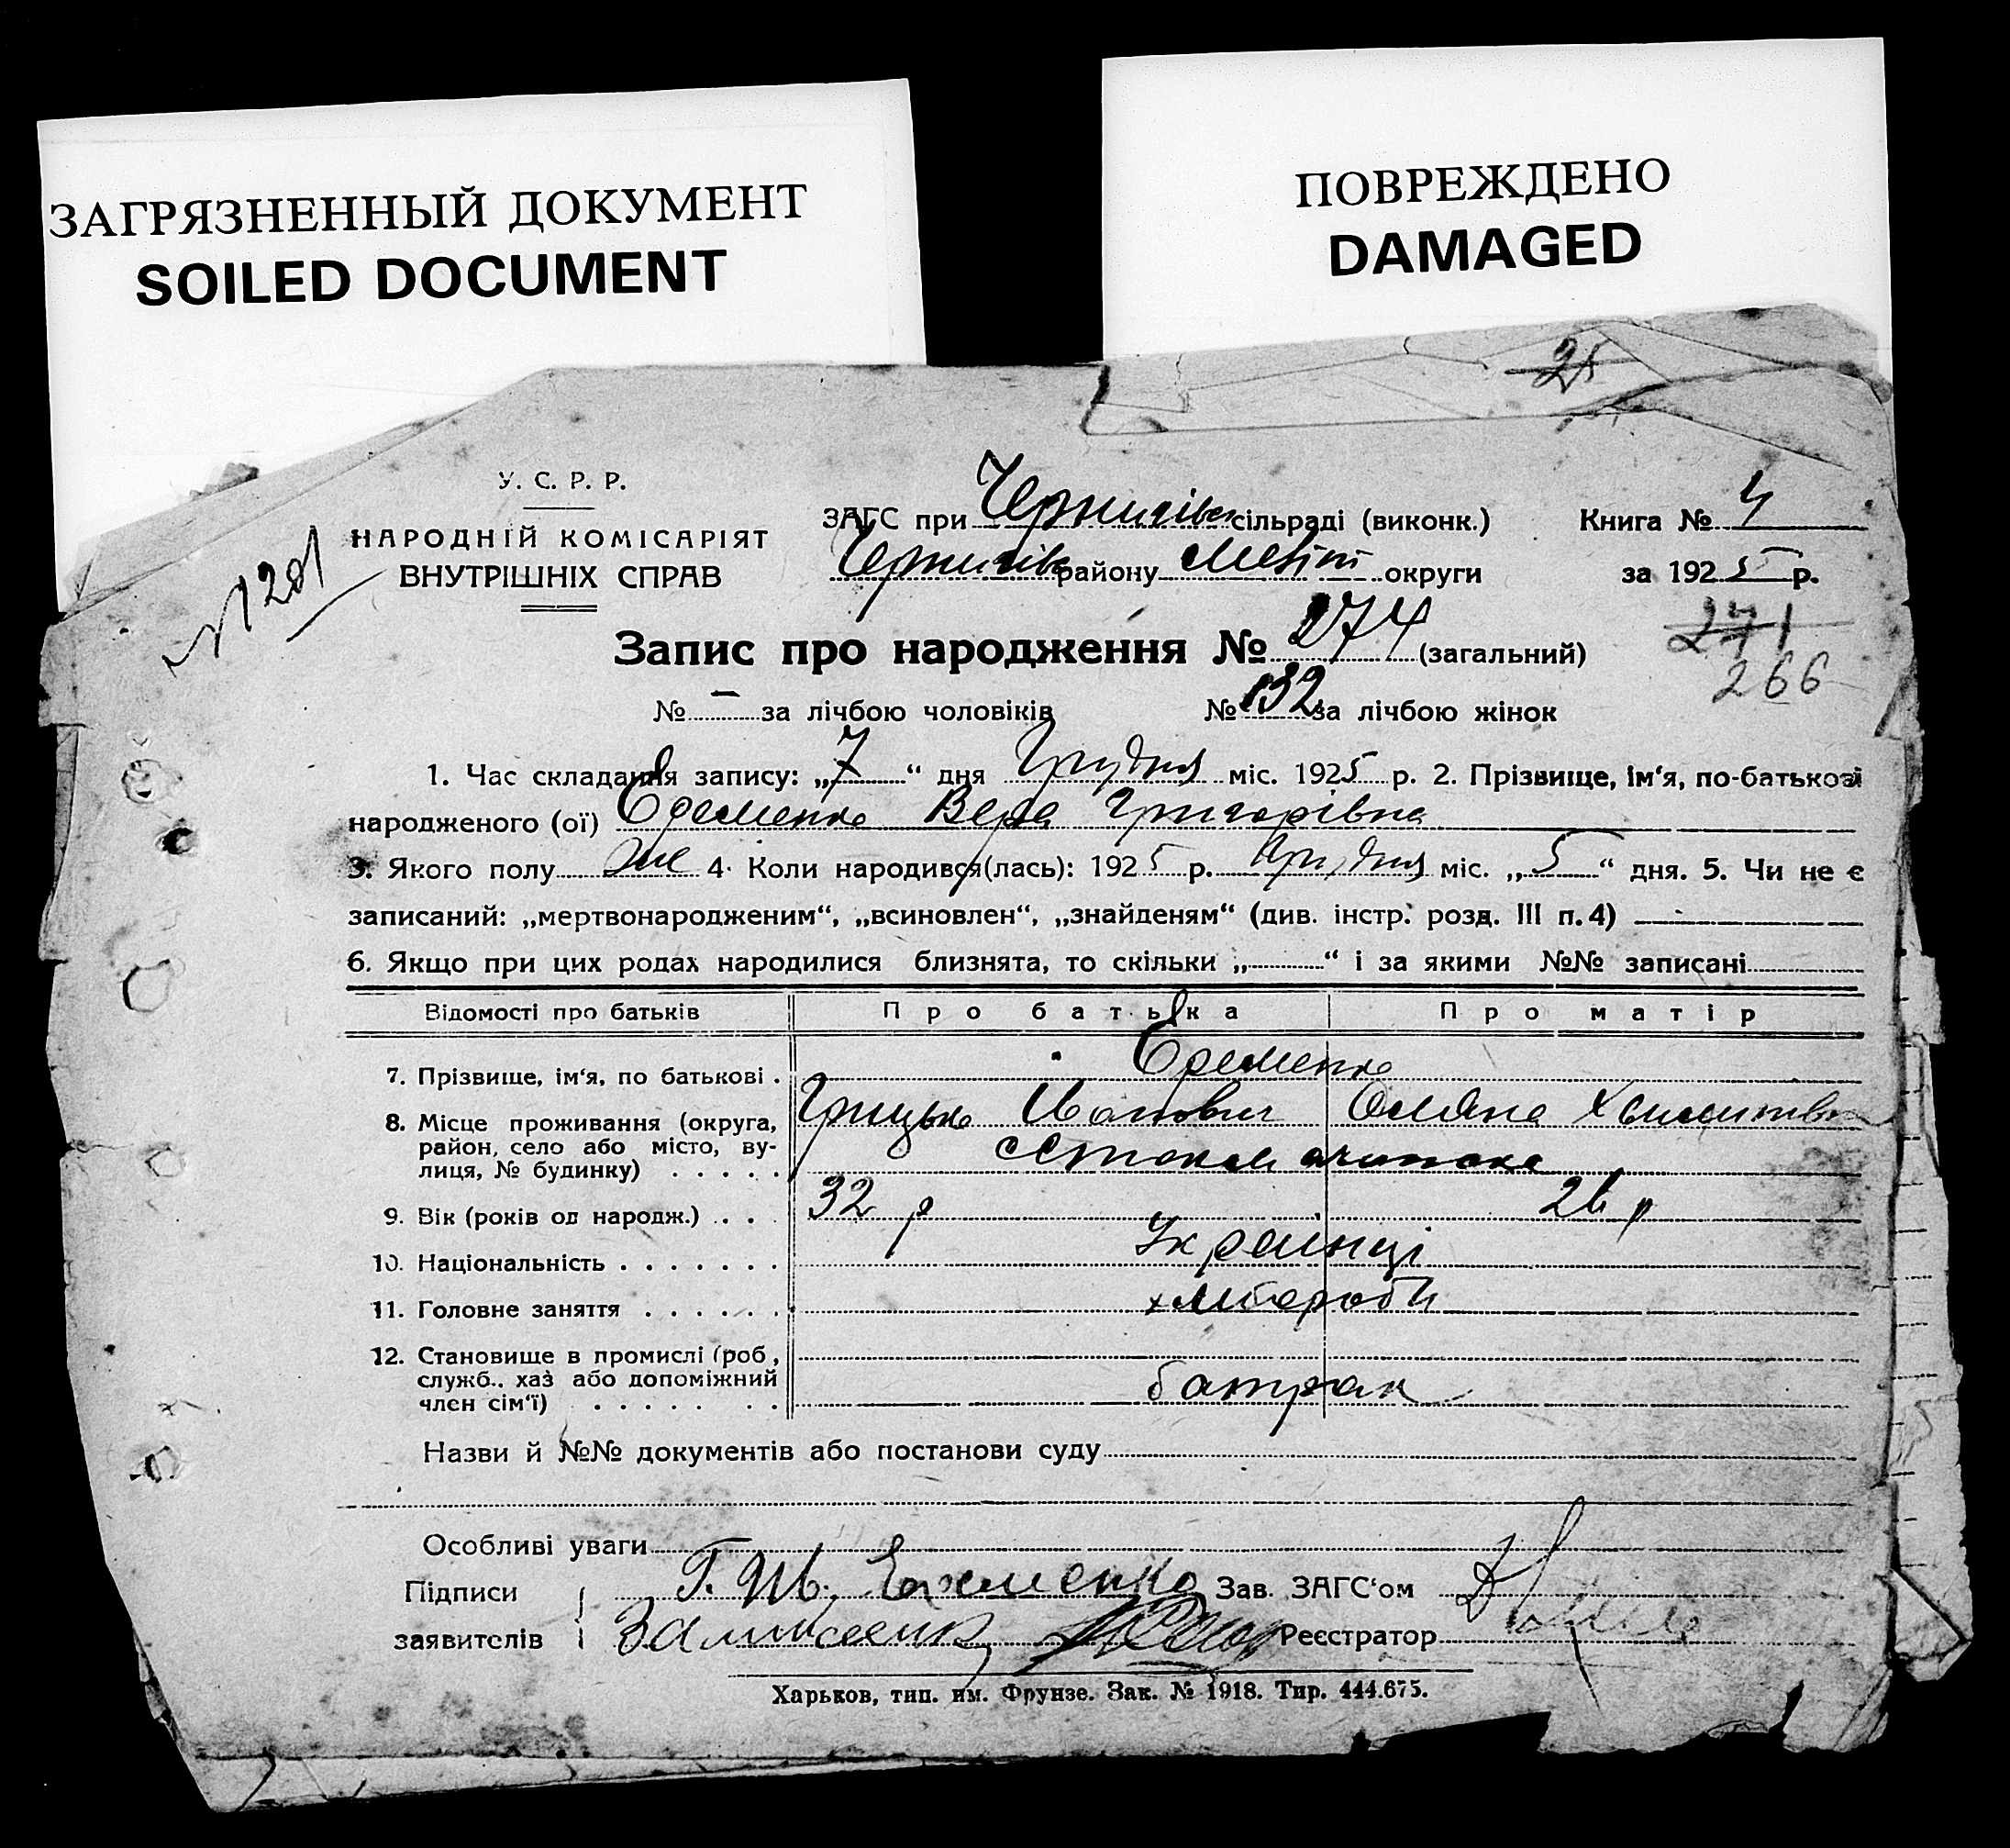 ЗАГРЯЗНЕННЫЙ ДОКУМЕНТ
SOILED DOCUMENT
ПОВРЕЖДЕНО
DAMAGED
25
У. С. Р. Р.
НАРОДНІЙ КОМІСАРІЯТ
ВНУТРІШНІХ СПРАВ
ЗАГС при Чернигівс сільраді (виконк.) Книга № 4
Чернигів району Меліт округи за 1925 р.
Запис про народження № 274 (загальний)
271
266
№ — за лічбою чоловіків № 132 за лічбою жінок
1. Час складання запису: „7“ дня Грудня міс. 1925 р. 2. Прізвище, ім‘я, по-батькові
народженого (ої) Єременко Вера Григорівна
3. Якого полу же 4. Коли народився(лась): 1925 р. Грудня міс. „5“ дня. 5. Чи не є
записаний: „мертвонародженим“, „всиновлен“, „знайденям“ (див. інстр. розд. III п. 4)
6. Якщо при цих родах народилися близнята, то скільки „ “ і за якими №№ записані
Відомості про батьків Про батька Про матір
7. Прізвище, ім‘я, по батькові . Єременко
Грицько Иванович Оляна
8. Місце проживання (округа, район, село або місто, вулиця, № будинку)
9. Вік (років од народж.) . . . 32 р 26 р
10. Національність . . . . . . . Українці
11. Головне заняття . . . . . . хлібороби
12. Становище в промислі (роб, служб., хаз або допоміжний член сім‘ї) батрак
Назви й №№ документів або постанови суду
Особливі уваги
Підписи заявителів Г. Ив. Еременко Зав. ЗАГС‘ом
Реєстратор
Харьков, тип. им. Фрунзе. Зак. № 1918. Тир. 444.675.